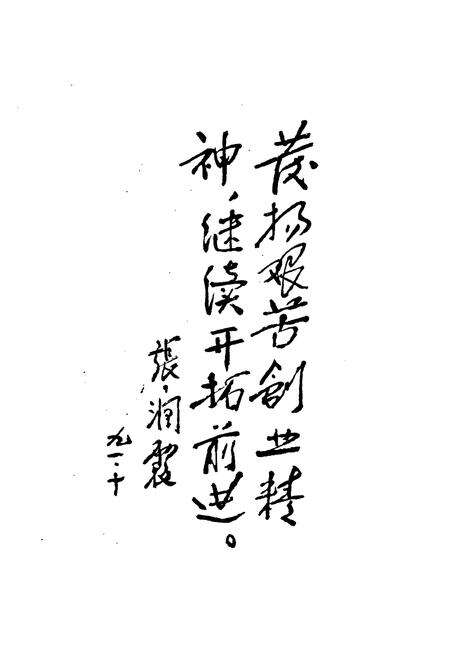 發扬艰苦創业精
神，继续开拓前进。
張润霞
九一.十